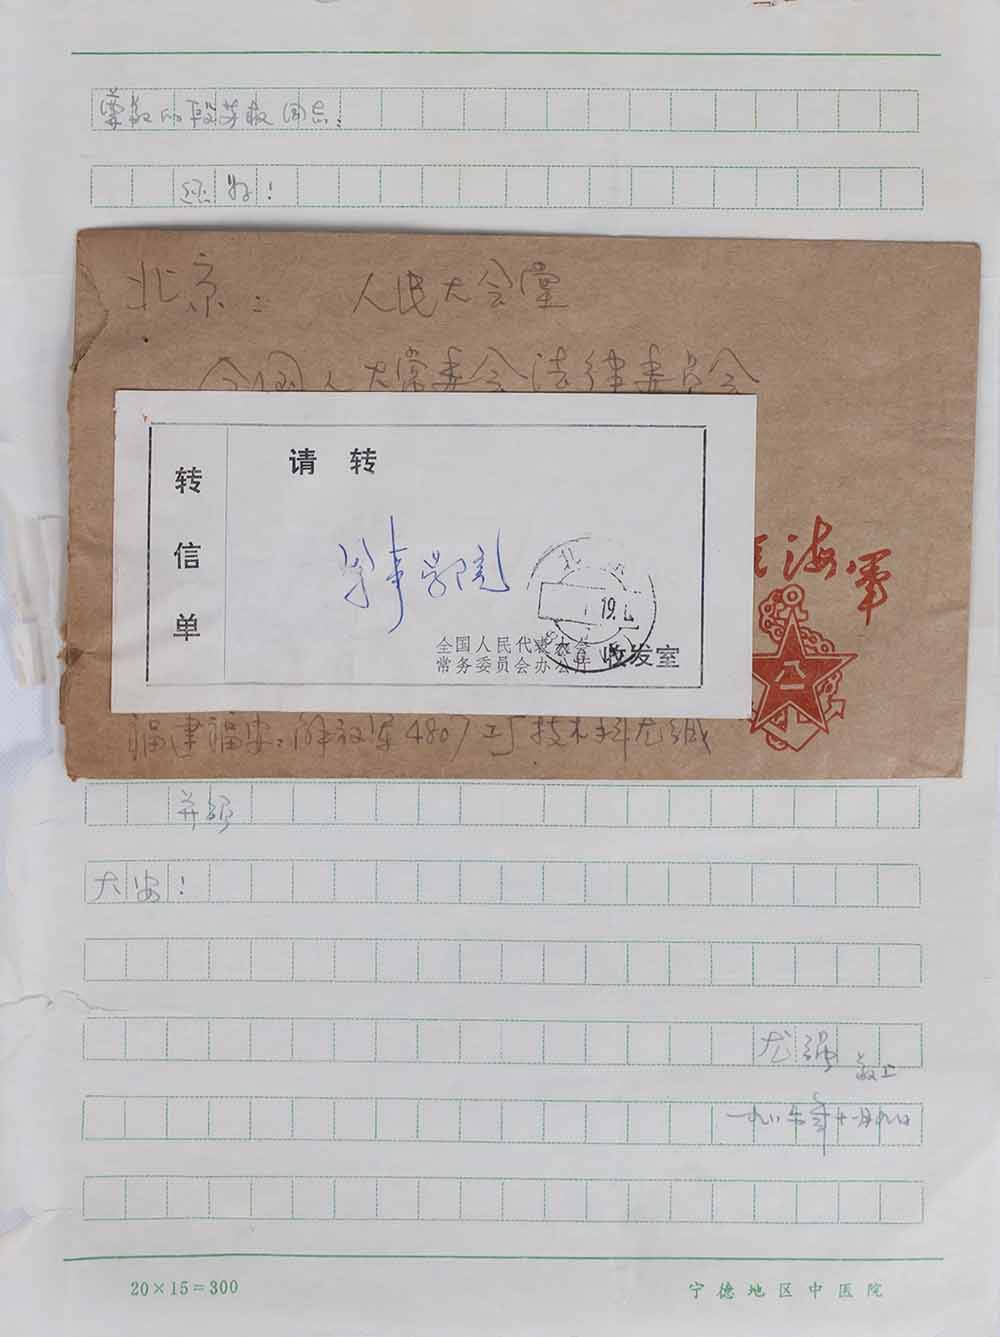 尊敬的段苏权同志：
您好！
北京： 人民大会堂
全国人大常委会法律委员会
转信单
请 转
军事学院
19.
全国人民代表大会
常务委员会办公厅 收发室
海军
八一
福建福安：解放军4807工厂技术科尤强
并颂
大安！
尤强 敬上
一九八五年十一月九日
20×15=300
宁德地区中医院